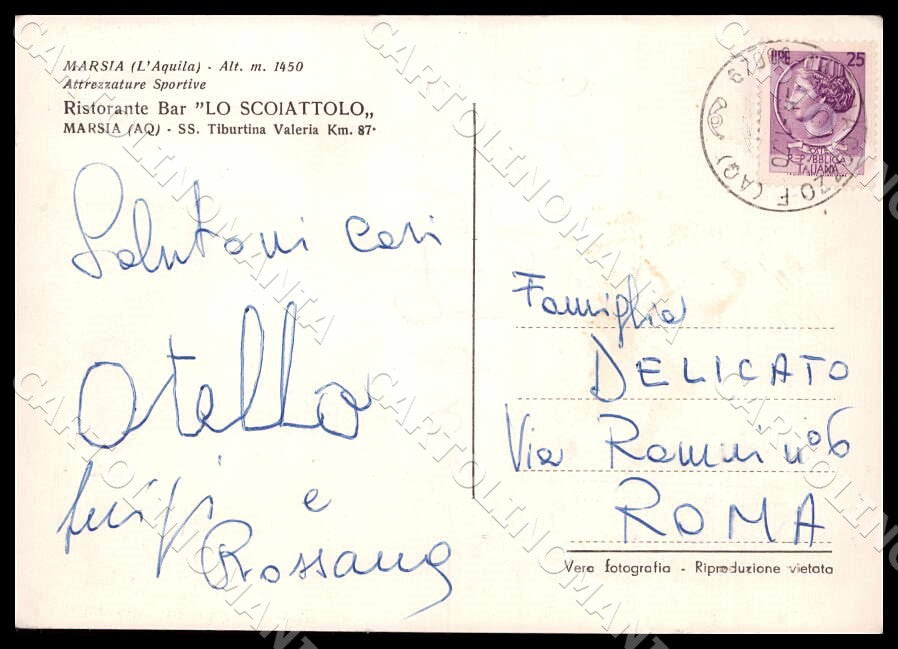 MARSIA (L'Aquila) - Alt. m. 1450
Attrezzature Sportive
Ristorante Bar "LO SCOIATTOLO„
MARSIA (AQ) - SS. Tiburtina Valeria Km. 87·
Salutoni cari
Otello
Luigi e
Rossana
LIRE 25
REPUBBLICA
ITALIANA
67069
(AQ)
Famiglia
DELICATO
Via n° 6
ROMA
Vera fotografia - Riproduzione vietata
CARTOLINOMANIA